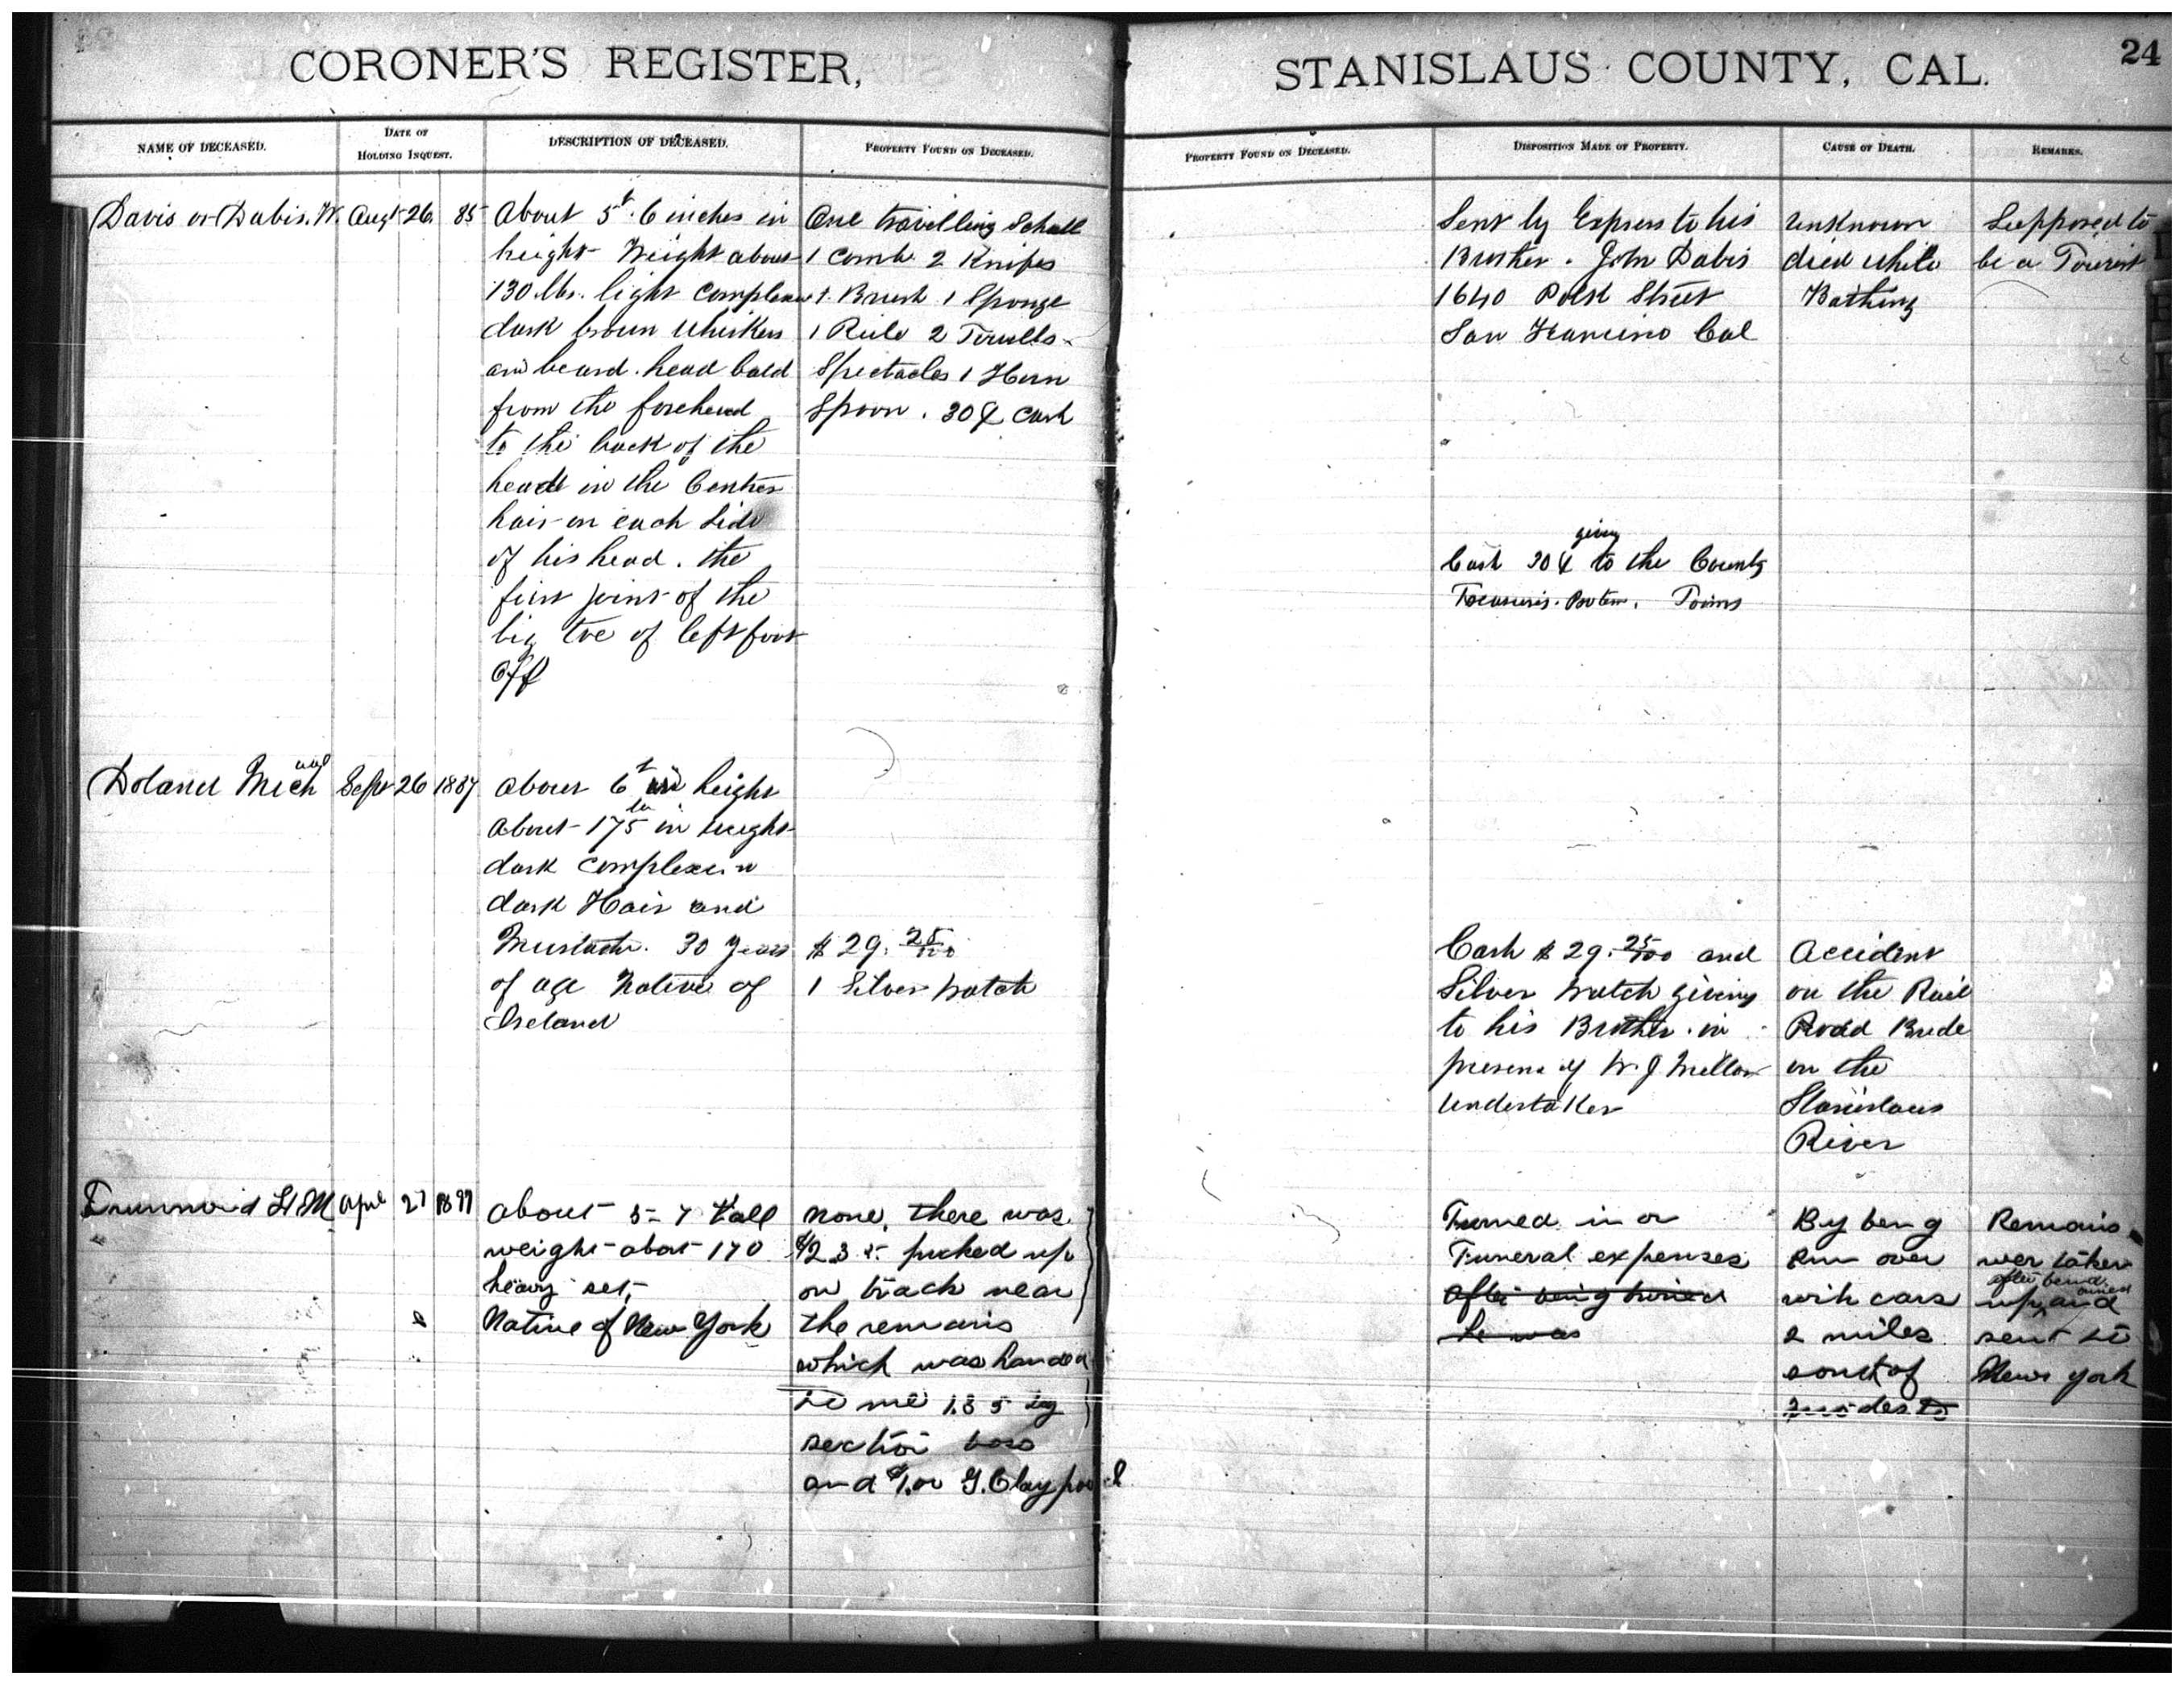 CORONER'S REGISTER,
STANISLAUS COUNTY, CAL.
24
NAME OF DECEASED.
DATE OF
HOLDING INQUEST.
DESCRIPTION OF DECEASED.
PROPERTY FOUND ON DECEASED.
PROPERTY FOUND ON DECEASED.
DISPOSITION MADE OF PROPERTY.
CAUSE OF DEATH.
REMARKS.
Davis or Dabis. W.
Augt 26. 85
About 5 f. 6 inches in
height Weight about
130 lbs. light Complexion
dark brown Whiskers
and beard. head bald
from the forehead
to the back of the
head in the Center
hair on each Side
of his head. the
first joint of the
big toe of left foot
off
One travelling Schall
1 Comb 2 Knifes
1. Brush 1 Sponge
1 Rule 2 Towells
Spectacles 1 Horn
Spoon. 30¢ Cash
Sent by Express to his
Brother. John Dabis
1640 Polk Street
San Francisco Cal
giving
Cash 30¢ to the County
Treasurer. Protem. Toms
Unknown
died while
Bathing
Supposed to
be a Tourist
Doland Michael
Sept 26 1887
About 6 f in height
About 175 lb in weight
dark Complexion
dark Hair and
Mustache. 30 Years
of age Native of
Ireland
$ 29. 25/100
1 Silver Watch
Cash $ 29. 25/100 and
Silver Watch giving
to his Brother. in
presence of W. J Mellow
Undertaker
Accident
on the Rail
Road Bridge
on the
Stanislaus
River
Drummond H M
Apr 27 1899
About 5-7 tall
weight about 170
heavy set,
Native of New York
none, there was
$2.35 picked up
on track near
the remains
which was handed
to me 1.35 by
section boss
and $1.00 G. Claypool
Turned in on
Funeral expenses
After being turned
he was
By being
run over
with cars
2 miles
south of
Modesto
Remains
wer taken
up, and
sent to
New York